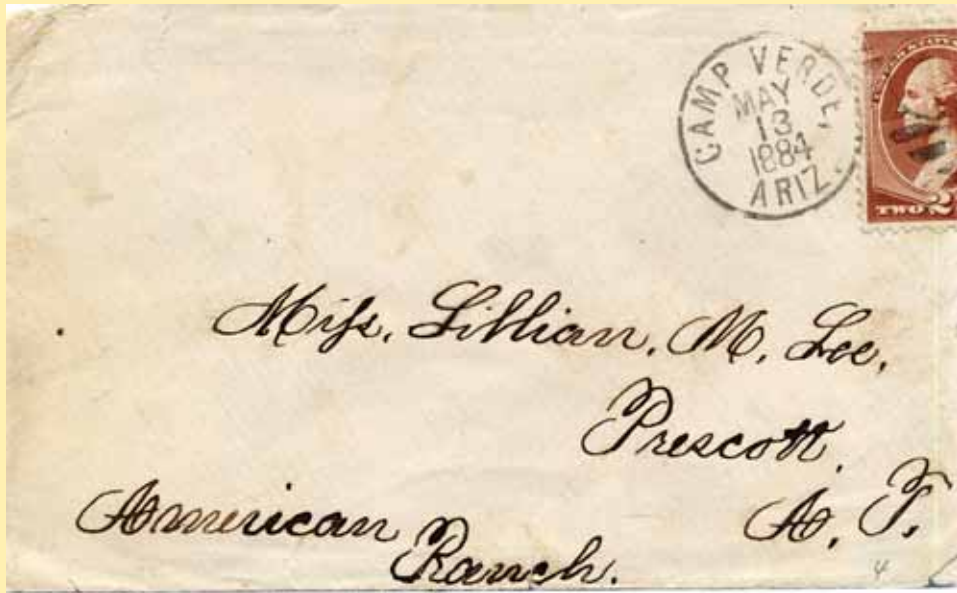 CAMP VERDE,
MAY
13
1884
ARIZ.
TWO 2
Miſs. Lillian. M. Lee.
Prescott.
A. T.
American
Ranch.
4